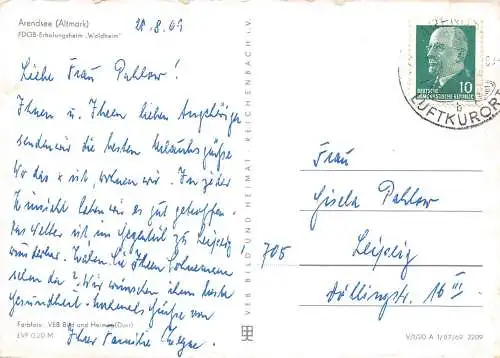 Arendsee (Altmark)
FDGB-Erholungsheim „Waldheim"
28.8.69
Liebe Frau Pahlow!
Ihnen u. Ihren lieben Angehörigen
senden wir die besten Urlaubsgrüße
Wo das x ist, wohnen wir. In jeder
Hinsicht haben wir es gut getroffen.
Das Wetter ist im Gegenteil zu Leipzig
wunderbar. Waren Sie Ihren
schon da? Wir wünschen ihm beste
Gesundheit. Nochmals Grüße von
Ihrer Familie
Farbfoto: VEB Bild und Heimat (Darr)
EVP 0,20 M
VEB BILD UND HEIMAT · REICHENBACH I. V.
DEUTSCHE
DEMOKRATISCHE REPUBLIK
10
LUFTKURORT
b
Frau
Gisela Pahlow
705 Leipzig
Döllingstr. 16 III
V/1/20 A 1/07/69 2209